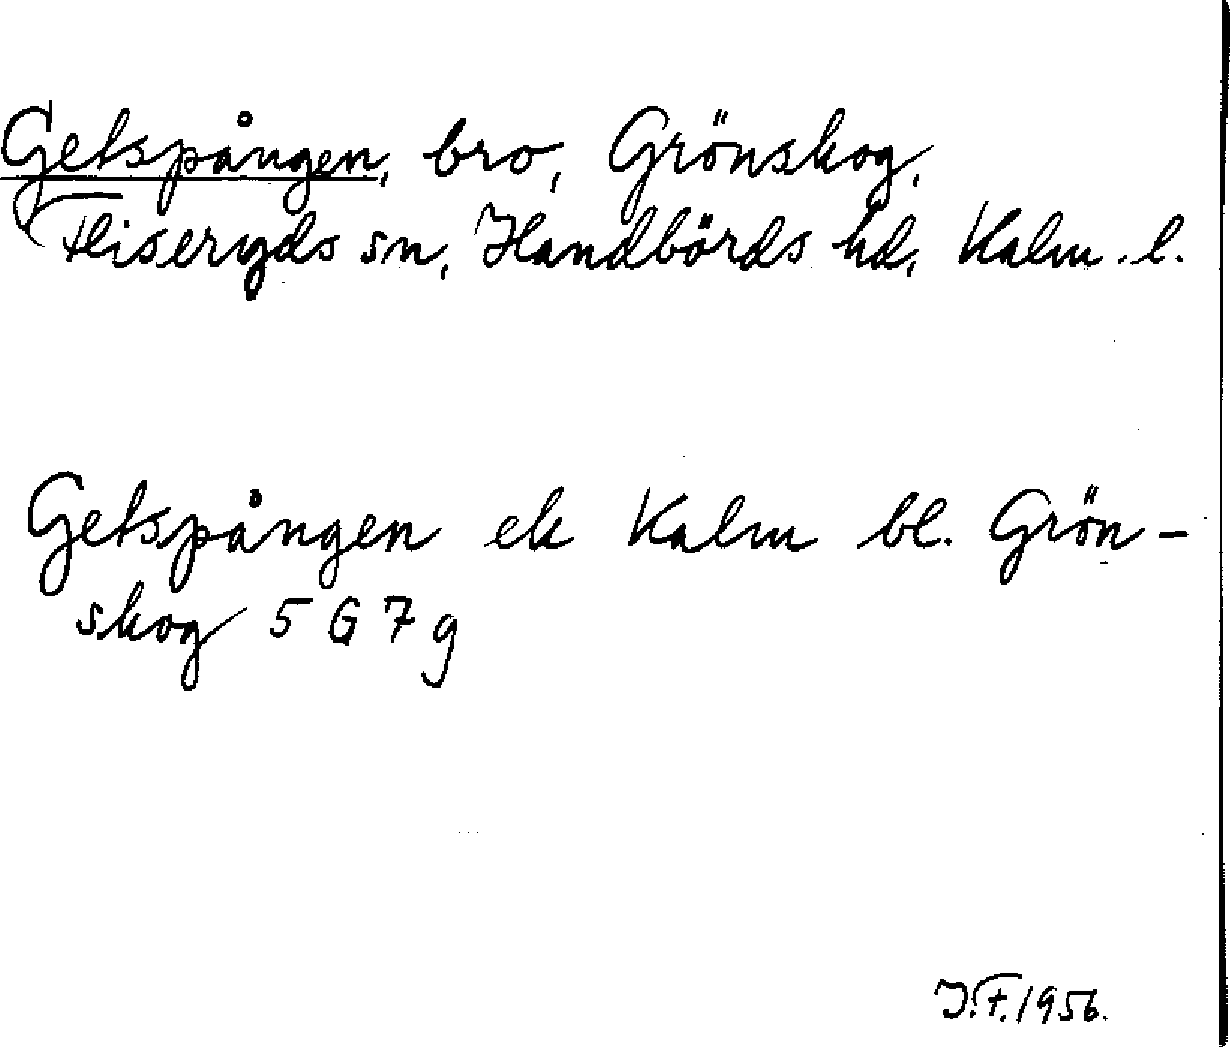 Getspången, bro, Grönskog,
Fliseryds sn, Handbörds hd, Kalm. l.
Getspången ek Kalm bl. Grön-
skog 5 G 7 g
J.F. 1956.